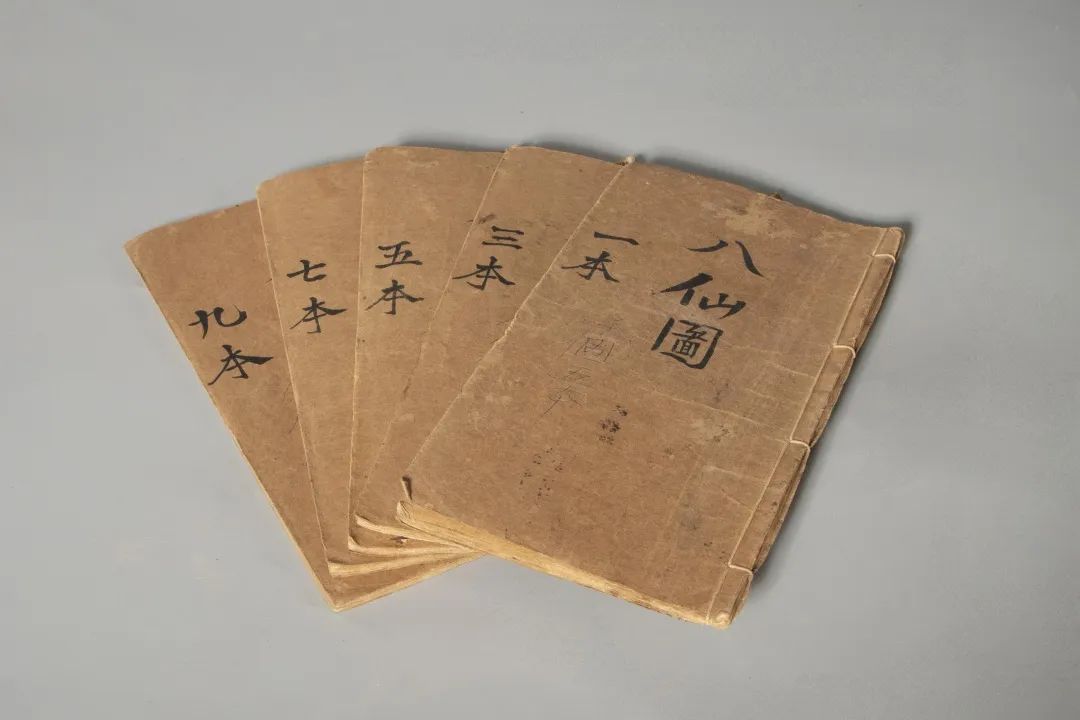 八仙圖
一本
三本
五本
七本
九本